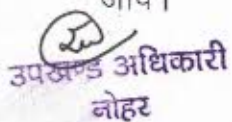 जाये।
उपखण्ड अधिकारी
नोहर